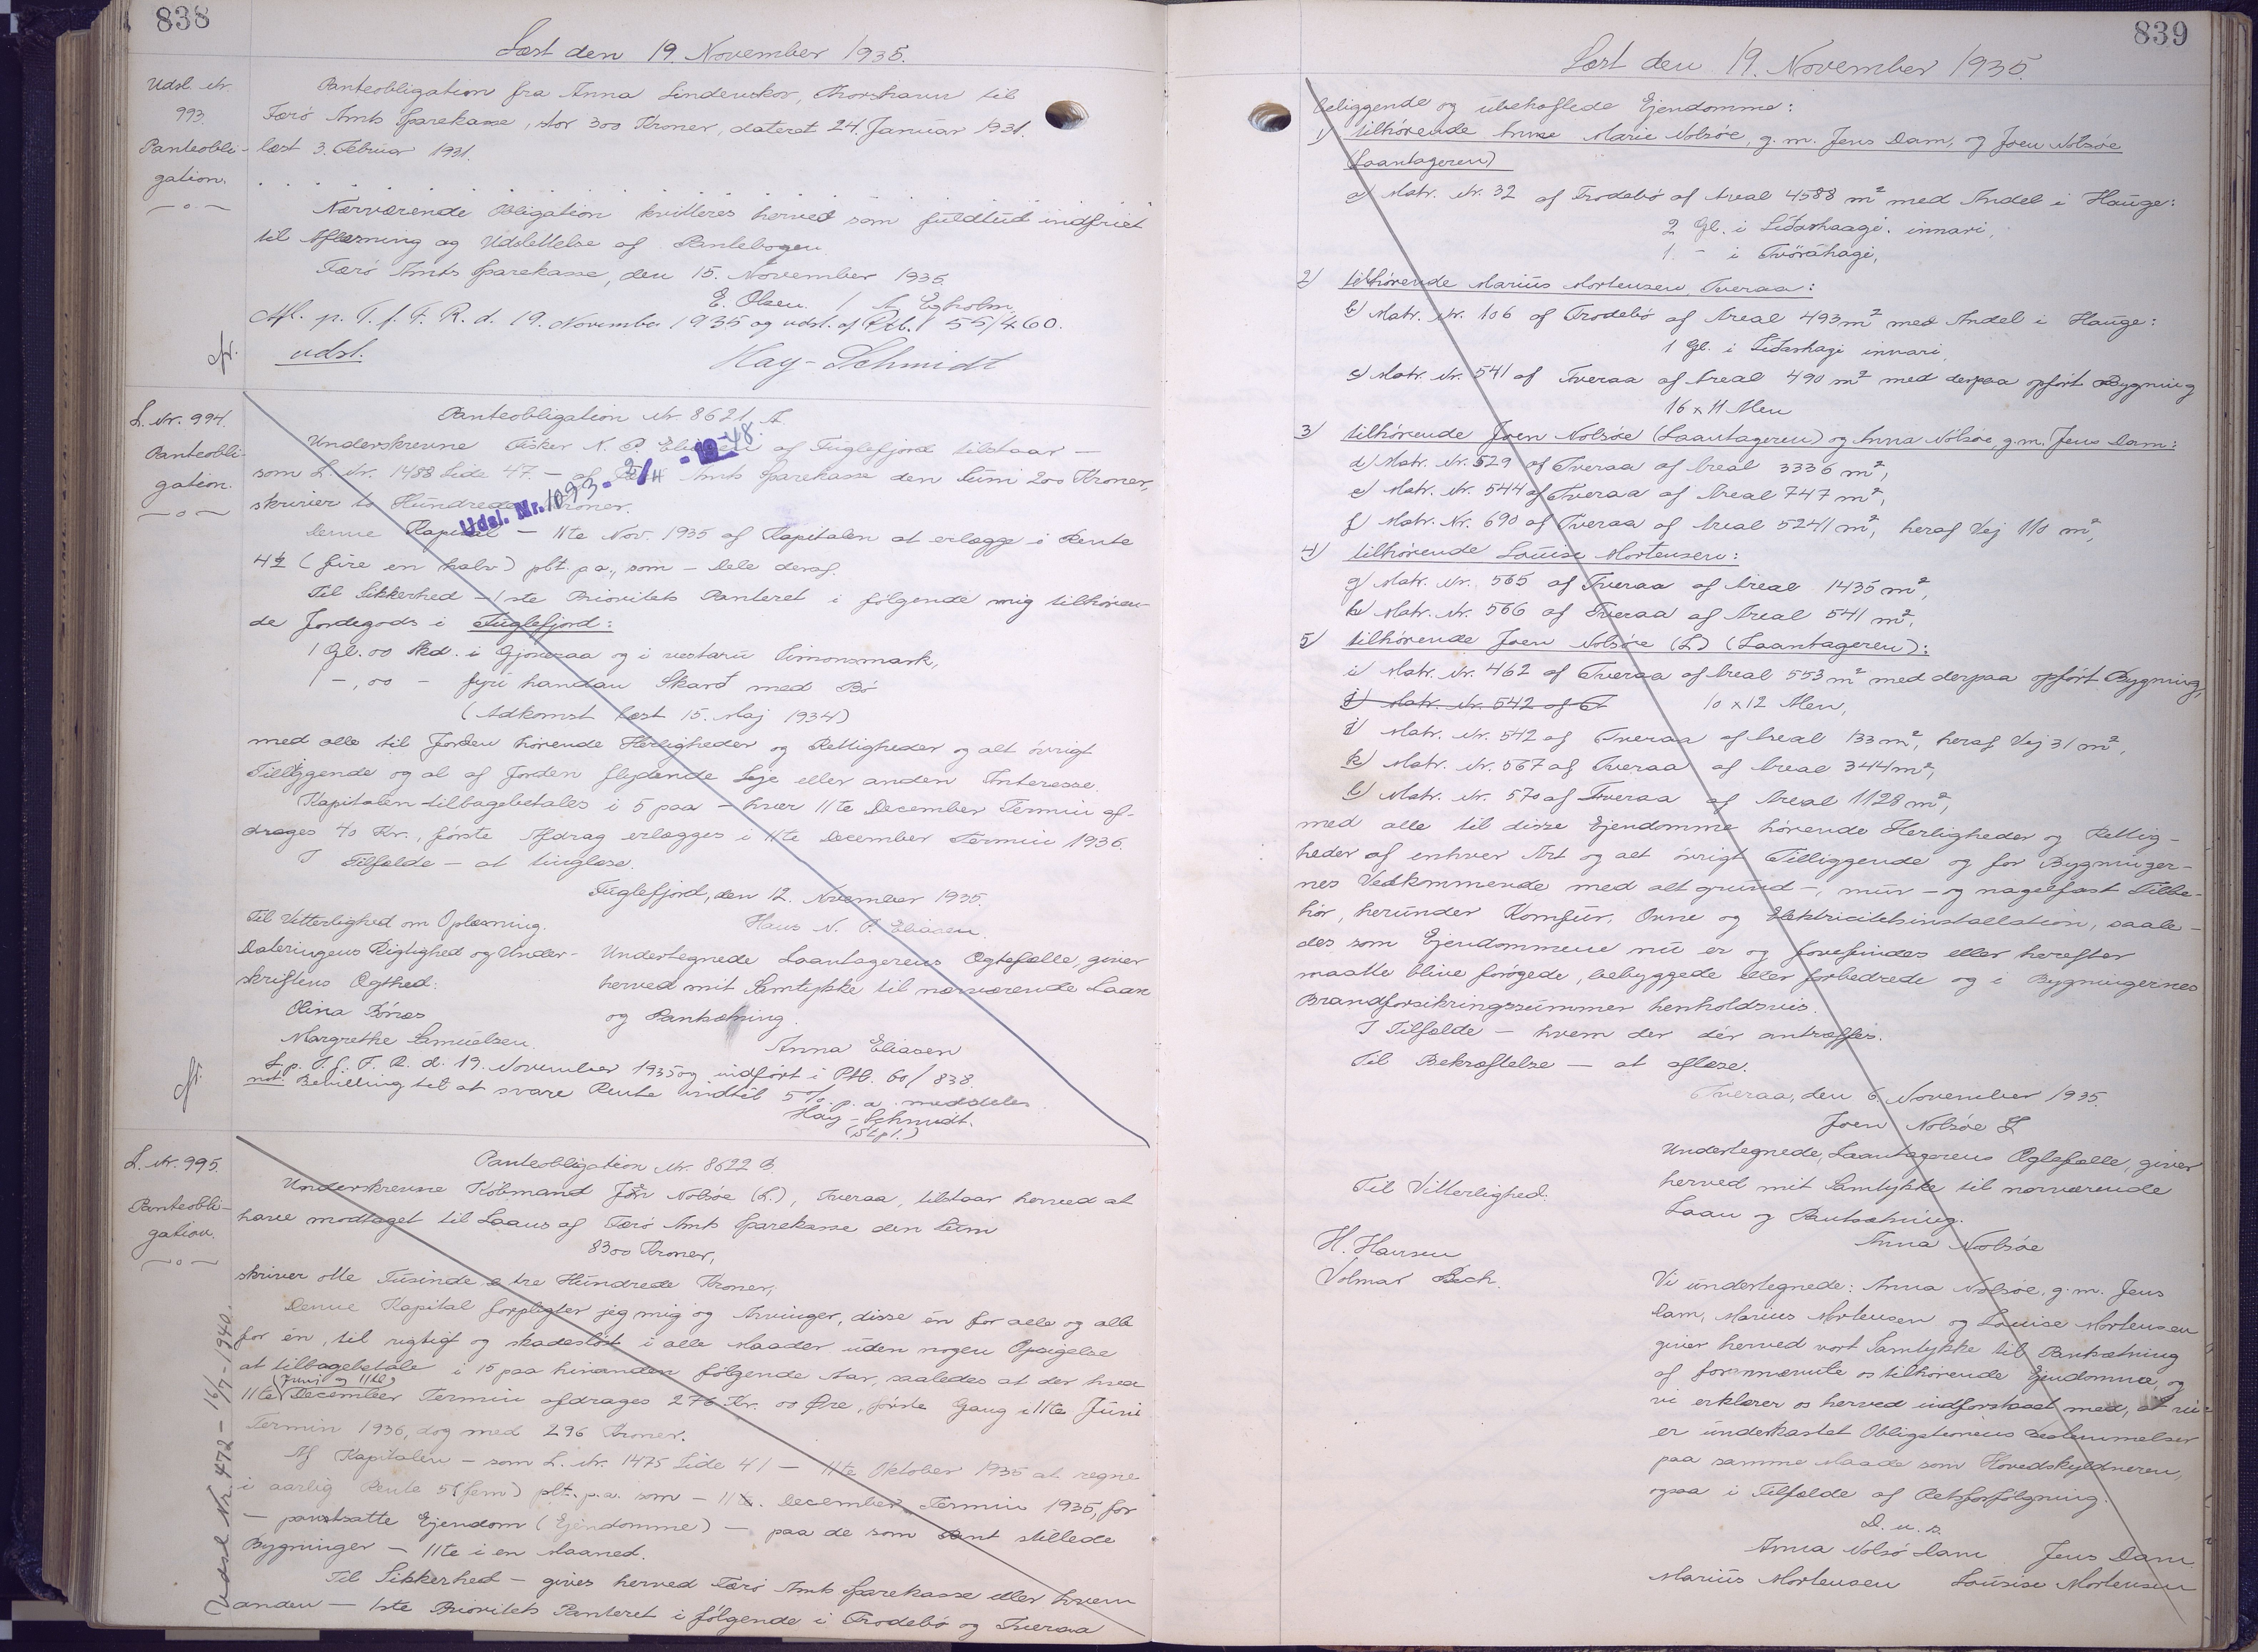 838
Læst den 19. November 1935.
Udsl. Nr. 993.
Panteobligation.
Panteobligation fra Anna Lindenskov, Thorshavn til
Færö Amts Sparekasse, stor 300 Kroner, dateret 24. Januar 1931.
læst 3. Februar 1931.
Nærværende Obligation kvitteres herved som fuldtud indfriet
til Aflæsning og Udslettelse af Pantebogen.
Færö Amts Sparekasse, den 15. November 1935.
E. Olsen. / A. Egholm.
Afl. p. T. f. F. R. d. 19. November 1935 og udsl. af Ptb. 55/460.
udsl.
Hay-Schmidt
L. Nr. 994.
Panteobligation.
Panteobligation Nr. 8621 A
Underskrevne Fisker N. P. Eliasen af Fuglefjord tilstaar —
som L. Nr. 1488 Side 47. — af Færö Amts Sparekasse den Sum 200 Kroner,
skriver to Hundrede Kroner.
Udsl. Nr. 1093 - 2/11 - 1948.
Denne Kapital — 11te Nov. 1935 af Kapitalen at erlægge i Rente
4½ (fire en halv) pCt. p.a., som — Dele deraf.
Til Sikkerhed — 1ste Prioritets Panteret i følgende mig tilhören-
de Jordegods i Fuglefjord:
1 Gl. 00 Skd. i Gjoveraa og i vestaru Simonsmark,
1 — , 00 — fyri handan Skarð med Bö
(Adkomst læst 15. Maj 1934)
med alle til Jorden hörende Herligheder og Rettigheder og alt övrigt
Tilliggende og al af Jorden flydende Leje eller anden Interesse.
Kapitalen tilbagebetales i 5 paa — hver 11te December Termin af-
drages 40 Kr., förste Afdrag erlægges i 11te December Termin 1936.
I Tilfælde — at tinglæse.
Fuglefjord, den 12. November 1935.
Til Vitterlighed om Oplæsning.
Hans N. P. Eliasen.
Dateringens Rigtighed og Under-
skriftens Ægthed:
Undertegnede Laantagerens Ægtefælle, giver
herved mit Samtykke til nærværende Laan
og Pantsætning.
Olina Fönæs
Margrethe Samuelsen.
Anna Eliasen
L. p. T. f. F. R. d. 19. November 1935 og indført i Ptb. 60/838.
not. Bevilling til at svare Rente indtil 5% p. a. meddeles
Hay-Schmidt.
(Stpl.)
L. Nr. 995.
Panteobligation.
Udsl. Nr. 472 - 16/7 - 1940.
Panteobligation Nr. 8622 B.
Underskrevne Köbmand Joen Nolsöe (L.), Tveraa, tilstaar herved at
have modtaget til Laans af Færö Amts Sparekasse den Sum
8300 Kroner,
skriver otte Tusinde tre Hundrede Kroner,
Denne Kapital forpligter jeg mig og Arvinger, disse én for alle og alle
for én, til rigtigt og skadeslöst i alle Maader uden nogen Opsigelse
at tilbagebetale i 15 paa hinanden følgende Aar, saaledes at der hver
(Juni og 11te)
11te December Termin afdrages 276 Kr. 00 Øre, förste Gang i 11te Juni
Termin 1936, dog med 296 Kroner.
Af Kapitalen — som L. Nr. 1475 Side 41 — 11te Oktober 1935 at regne
i aarlig Rente 5 (fem) pCt. p.a. som — 11te December Termin 1935, for
— pantsatte Ejendom (Ejendomme) — paa de som Pant stillede
Bygninger — 11te i en Maaned.
Til Sikkerhed — gives herved Færö Amts Sparekasse eller hvem
anden — 1ste Prioritets Panteret i følgende i Frodebö og Tveraa
839
Læst den 19. November 1935.
beliggende og ubehæftede Ejendomme:
1) tilhörende Anne Marie Nolsöe, g. m. Jens Dam, og Joen Nolsöe
(Laantageren)
a) Matr. Nr. 32 af Frodebö af Areal 4588 m² med Andel i Hauge:
2 Gl. i Liðarhaagi innari,
1 - i Tvöráhagi,
2) tilhörende Marius Mortensen, Tveraa:
b) Matr. Nr. 106 af Frodebö af Areal 493 m² med Andel i Hauge:
1 Gl. i Liðarhagi innari,
c) Matr. Nr. 541 af Tveraa af Areal 490 m² med derpaa opfört Bygning
16 x 11 Alen
3) tilhörende Joen Nolsöe (Laantageren) og Anna Nolsöe, g. m. Jens Dam:
d) Matr. Nr. 529 af Tveraa af Areal 3336 m²,
e) Matr. Nr. 544 af Tveraa af Areal 747 m²,
f) Matr. Nr. 690 af Tveraa af Areal 5241 m², heraf Vej 110 m²,
4) tilhörende Louise Mortensen:
g) Matr. Nr. 565 af Tveraa af Areal 1435 m²,
h) Matr. Nr. 566 af Tveraa af Areal 541 m².
5) tilhörende Joen Nolsöe (L) (Laantageren):
i) Matr. Nr. 462 af Tveraa af Areal 553 m² med derpaa opfört Bygning,
j) Matr. Nr. 542 af T 10 x 12 Alen,
j) Matr. Nr. 542 af Tveraa af Areal 133 m², heraf Vej 31 m²,
k) Matr. Nr. 567 af Tveraa af Areal 344 m²,
l) Matr. Nr. 570 af Tveraa af Areal 1128 m²,
med alle til disse Ejendomme hörende Herligheder og Rettig-
heder af enhver Art og alt övrigt Tilliggende og for Bygninger-
nes Vedkommende med alt grund-, mur- og nagelfast Tilbe-
hör, herunder Komfur, Ovne og Elektricitetsinstallation, saale-
des som Ejendommene nu er og forefindes eller herefter
maatte blive forögede, bebyggede eller forbedrede og i Bygningernes
Brandforsikringssummer henholdsvis.
I Tilfælde — hvem der dér antræffes.
Til Bekræftelse — at aflæse.
Tveraa, den 6. November 1935.
Joen Nolsöe L
Undertegnede, Laantagerens Ægtefælle, giver
herved mit Samtykke til nærværende
Laan og Pantsætning.
Til Vitterlighed:
Anna Nolsöe
H. Hansen
Volmar Bech.
Vi undertegnede: Anna Nolsöe, g. m. Jens
Dam, Marius Mortensen og Louise Mortensen
giver herved vort Samtykke til Pantsætning
af forannævnte os tilhörende Ejendomme, og
vi erklærer os herved indforstaaet med, at vi
er underkastet Obligationens Bestemmelser
paa samme Maade som Hovedskyldneren,
ogsaa i Tilfælde af Retsforfölgning.
D. u. s.
Anna Nolsö Dam Jens Dam
Marius Mortensen Lousise Mortensen